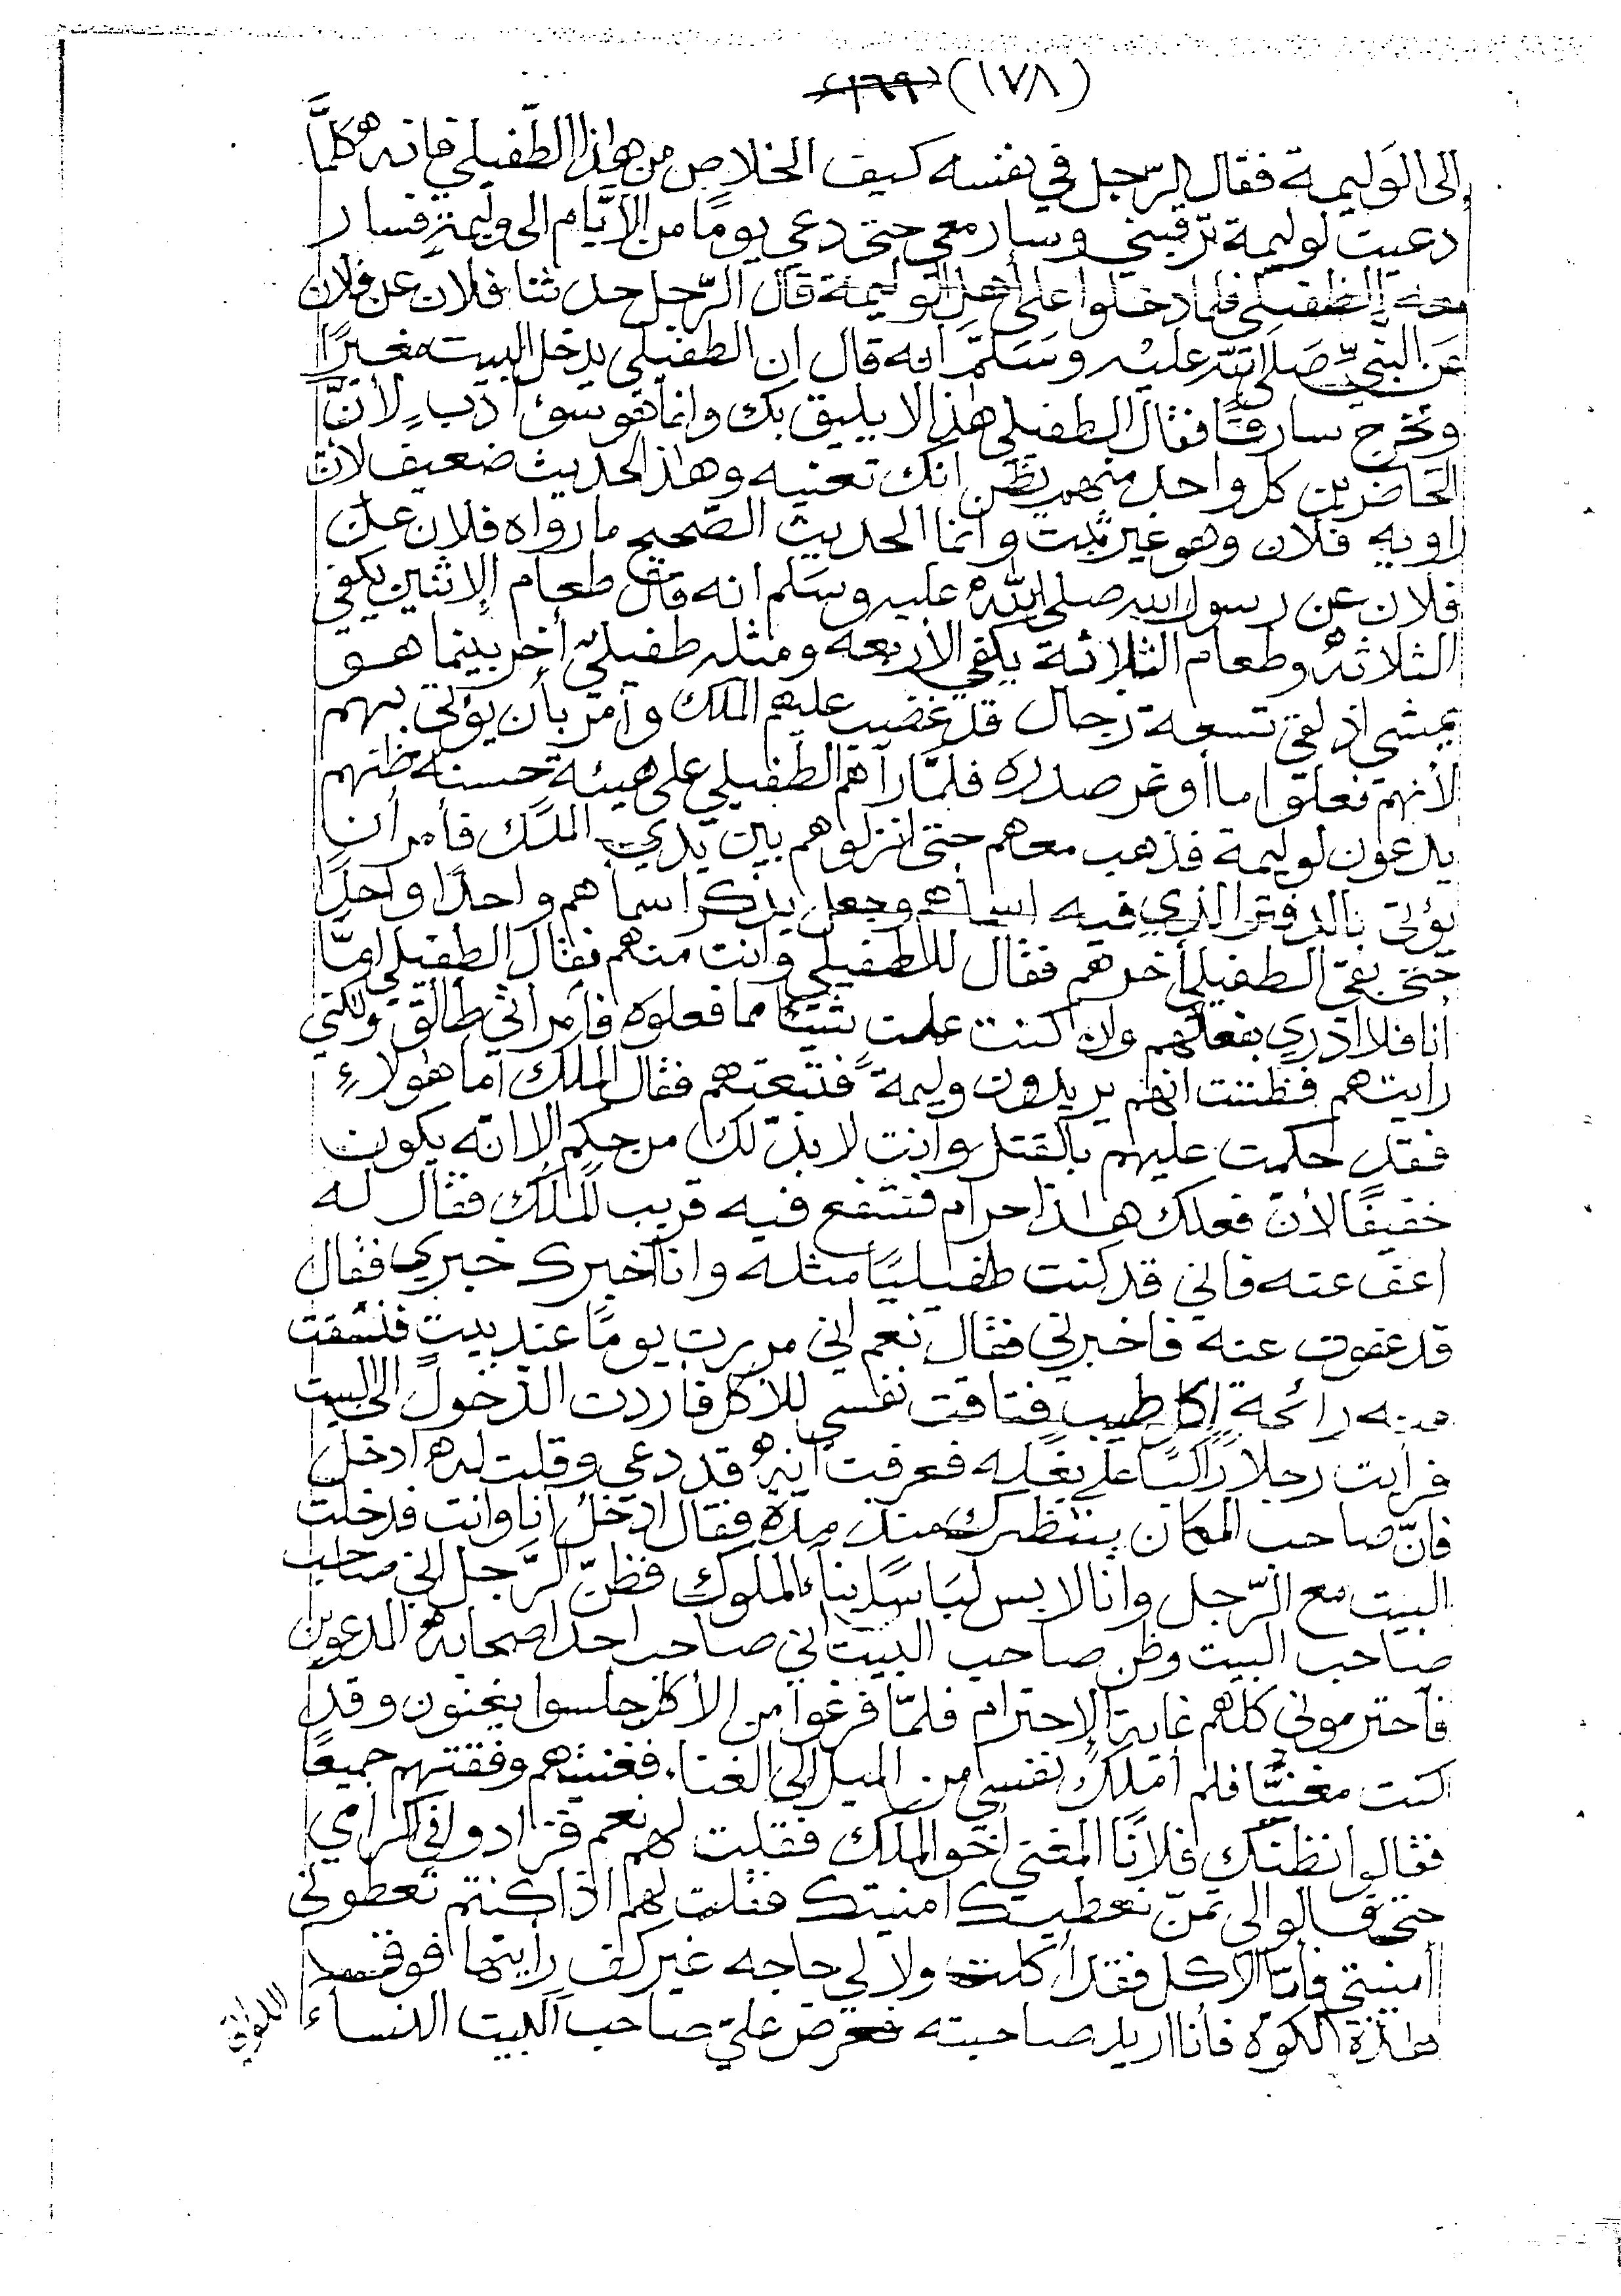 (١٧٨) ١٦٩
إلى الوَليمة فقال الرّجل في نفسه كيف الخلاص من هذا الطّفيلي فانه كلمَّا
دعيت لوليمة ترقبني وسار معي حتى دعي يومًا من الأيَّام الى وليمةٍ فسار
معه الطفيلي فلما دخلوا على أهل الوليمة قال الرّجل حدثنا فلان عن فلان
عَن النَّبيِّ صَلى الله عليْه وسَلمَّ انه قال ان الطفيلي يدخل البيت مغيرًا
ويخرج سارقًا فقال الطفيلي هذا لا يليق بك وانما هو سوء أدبٍ لأنَّ
الحَاضرين كل واحد منهم يظن انك تعنيه وهذا الحديث ضعيف لانّ
راويه فلان وهو غير ثبت وانما الحديث الصَّحيح ما رواه فلان عن
فلان عن رسول الله صلى الله عليه وسَلم انه قال طعام الإثنين يكفي
الثلاثه وطعام الثلاثة يكفي الأربعه ومثله طفيليّ أخر بينما هو
يمشي اذ لقي تسعة رجال قد غضب عليهم الملك وأمر بأن يؤتى بهم
لأنهم فعلوا ما أوغر صدره فلمَّا رآهم الطفيلي على هيئة حسنة ظنهم
يدعون لوليمة فذهب معهم حتى انزلوهم بين يدي الملك فأمر أن
يؤتى بالدفتر الذي فيه اسماهم وجعل يذكر اسماهم واحدًا واحدًا
حتى بقي الطفيلي أخرهم فقال للطفيلي وانت منهم فقال الطفيلي امَّا
أنا فلا ادري بفعلهم وان كنت علمت شيئا مما فعلوه فأمرأتي طالق ولكني
رايتهم فظننت انهم يريدون وليمةً فتبعتهم فقال الملك أما هؤلاءِ
فقد حكمت عليهم بالقتل وأنت لا بدّ لك من حكم إلا انّه يكون
خفيفًا لأن فعلك هذا حرام فشفع فيه قريب للملك فقال له
اعف عنه فاني قد كنت طفيليًا مثله وانا أخبرك خبري فقال
قد عفوت عنه فاخبرني فقال نعم اني مررت يومًا عند بيت فنشقت
منه رائحة اكل طيب فتاقت نفسي للأكل فأردت الدّخول الى البيت
فرأيت رجلاً راكبًا على بغله فعرفت أنه قد دعي وقلت له ادخل
فانّ صاحب المكان ينتظرك منذ مده فقال ادخل انا وانت فدخلت
البيت مع الرّجل وانا لابس لبَاسًا لأبناء الملوك فظنّ الرَّجل اني صاحب
صاحب البيت وظن صاحب البيت اني صاحب احد اصحابه المدعوين
فأحترموني كلهم غاية الإحترام فلمّا فرغوا من الأكل جلسوا يغنون وقد
كنت مغنيًّا فلم أملك نفسي من الميل الى الغناء فغنيتهم وفقتهم جميعًا
فقالوا نظنك فلانًا المغني أخو الملك فقلت لهم نعم فزادوا في اكرامي
حتى قالوا لي تمنّ نعطيك امنيتك فقلت لهم اذا كنتم تعطوني
أمنيتي فأمّا الأكل فقد أكلت ولا لي حاجه غير كف رأيتها فوق
هذه الكوّه فأنا اريد صاحبته فعرض عليّ صاحب البيت النساء
اللواتي